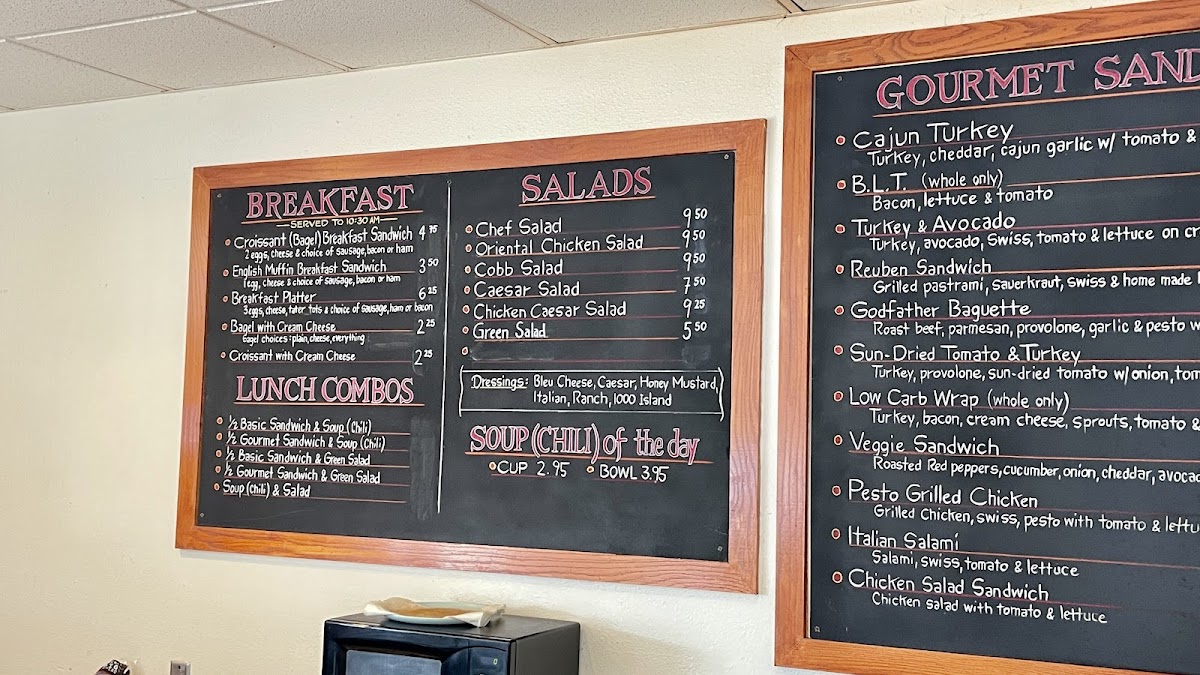 BREAKFAST
SERVED TO 10:30 AM
Croissant (Bagel) Breakfast Sandwich 4 75
2 eggs, cheese & choice of sausage, bacon or ham
English Muffin Breakfast Sandwich 3 50
1 egg, cheese & choice of sausage, bacon or ham
Breakfast Platter 6 25
3 eggs, cheese, tater tots & choice of sausage, ham or bacon
Bagel with Cream Cheese 2 25
bagel choices: plain, cheese, everything
Croissant with Cream Cheese 2 25
LUNCH COMBOS
½ Basic Sandwich & Soup (Chili)
½ Gourmet Sandwich & Soup (Chili)
½ Basic Sandwich & Green Salad
½ Gourmet Sandwich & Green Salad
Soup (Chili) & Salad
SALADS
Chef Salad 9 50
Oriental Chicken Salad 9 50
Cobb Salad 9 50
Caesar Salad 7 50
Chicken Caesar Salad 9 25
Green Salad 5 50
Dressings: Bleu Cheese, Caesar, Honey Mustard,
Italian, Ranch, 1000 Island
SOUP (CHILI) of the day
CUP 2.95 BOWL 3.95
GOURMET SAND
Cajun Turkey
Turkey, cheddar, cajun garlic w/ tomato &
B.L.T. (whole only)
Bacon, lettuce & tomato
Turkey & Avocado
Turkey, avocado, Swiss, tomato & lettuce on cr
Reuben Sandwich
Grilled pastrami, sauerkraut, swiss & home made
Godfather Baguette
Roast beef, parmesan, provolone, garlic & pesto w
Sun-Dried Tomato & Turkey
Turkey, provolone, sun-dried tomato w/onion, tom
Low Carb Wrap (whole only)
Turkey, bacon, cream cheese, sprouts, tomato &
Veggie Sandwich
Roasted Red peppers, cucumber, onion, cheddar, avocad
Pesto Grilled Chicken
Grilled Chicken, swiss, pesto with tomato & lettu
Italian Salami
Salami, swiss, tomato & lettuce
Chicken Salad Sandwich
Chicken salad with tomato & lettuce